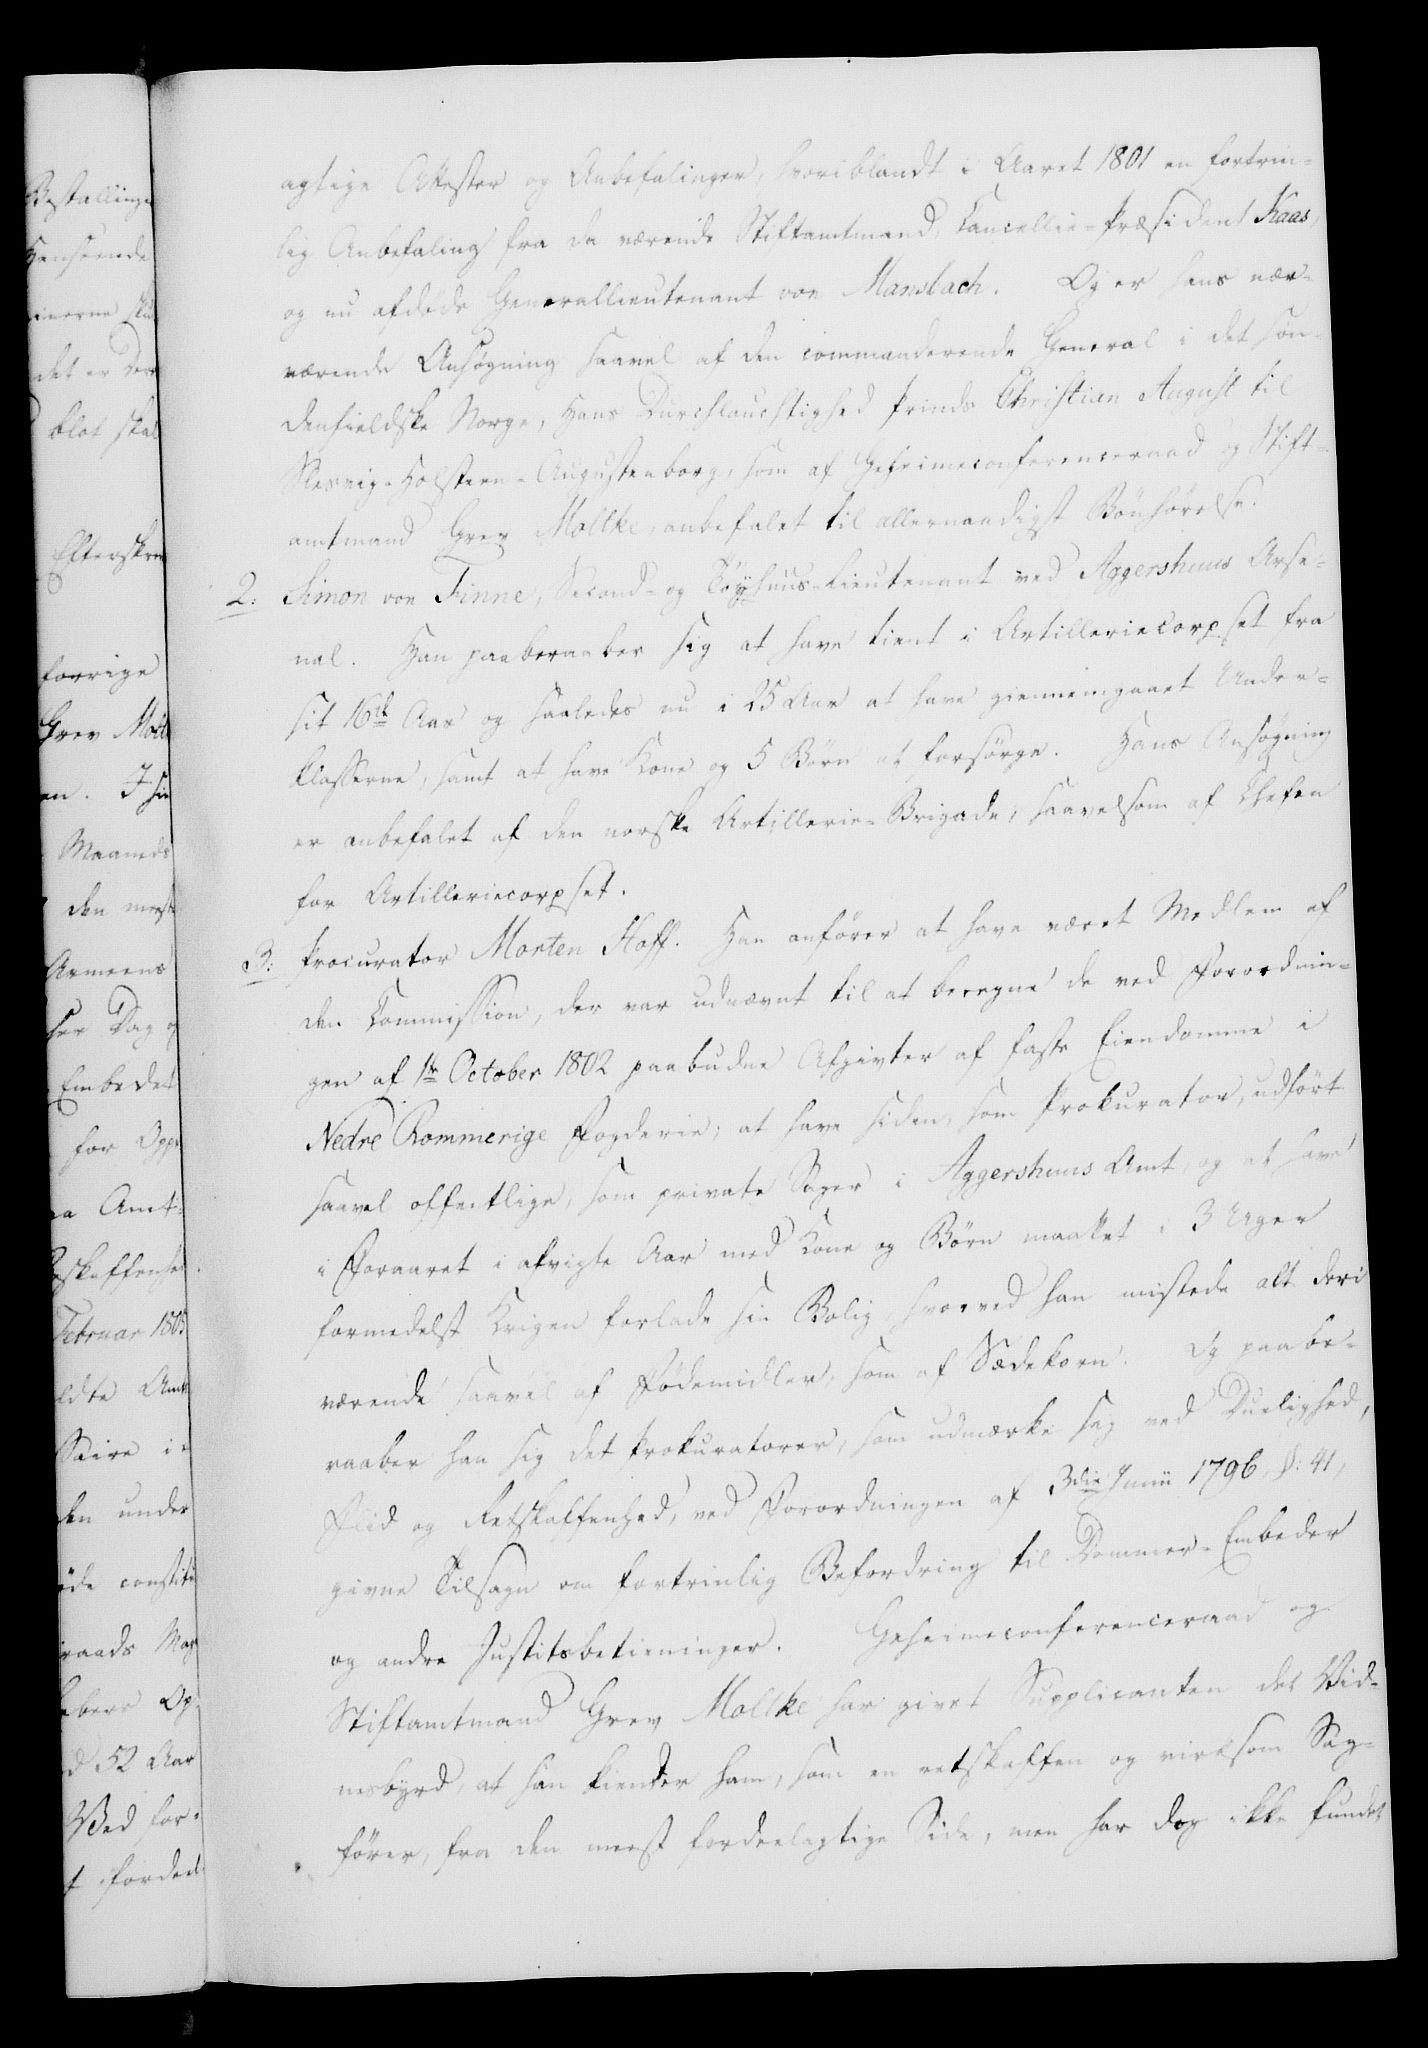 agtige Attester og Anbefalinger, hvoriblandt i Aaret 1801 en fortrin-
lig Anbefaling fra da værende Stiftamtmand, Cancellie-Præsident Kaas,
og nu afdøde Generallieutenant von Mansbach. Og er hans nær-
værende Ansøgning saavel af den commanderende General i det søn-
denfieldske Norge, Hans Durchlauchtighed Prinds Christian August til
Slesvig-Holsteen-Augustenborg, som af Geheimeconferenceraad og Stift-
amtmand Grev Moltke, anbefalet til allernaadigst Bönhörelse.
2: Simon von Finne, Second- og Töyhuus-Lieutenant ved Aggershuus Arse-
nal. Han paaberaaber sig at have tient i Artilleriecorpset fra
sit 16de Aar og saaledes nu i 25 Aar at have giennemgaaet Under-
klasserne, samt at have Kone og 5 Börn at forsörge. Hans Ansøgning
er anbefalet af den norske Artillerie-Brigade, saavelsom af Chefen
for Artilleriecorpset.
3: Procurator Morten Hoff. Han anförer at have været Medlem af
den Commission, der var udnævnt til at beregne de ved Forordnin-
gen af 1te October 1802 paabudne Afgivter af faste Eiendomme i
Nedre Rommerige Fogderie; at have siden, som Prokurator, udført
saavel offentlige, som private Sager i Aggershuus Amt, og at have
i Foraaret i afvigte Aar med Kone og Börn maattet i 3 Uger
formedelst Krigen forlade sin Bolig, hvorved han mistede alt deri
værende saavel af Födemidler, som af Sædekorn. Og paabe-
raaber han sig det Prokuratorer, som udmærke sig ved Duelighed,
Flid og Retskaffenhed, ved Forordningen af 3die Junii 1796, §: 41,
givne Tilsagn om fortrinlig Befordring til Dommer-Embeder
og andre Justitsbetieninger. Geheimeconferenceraad og
Stiftamtmand Grev Moltke har givet Supplicanten det Vid-
nesbyrd, at han kiender ham, som en retskaffen og virksom Sag-
förer, fra den meest fordeelagtige Side, men har dog ikke fundet